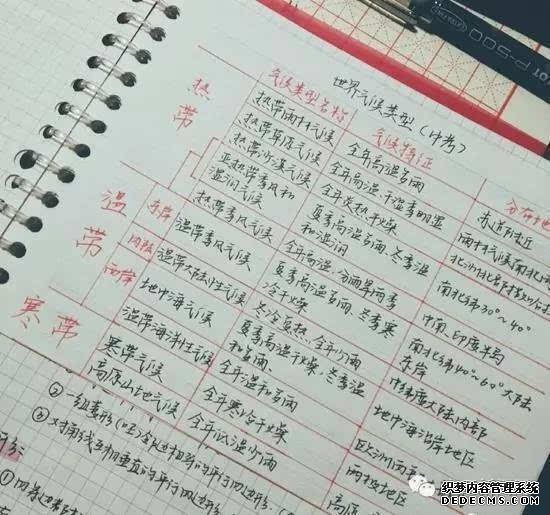 P-500
世界气候类型（中考）
气候类型名称 气候特征 分布地
热带
热带雨林气候 全年高温多雨 赤道附近
热带草原气候 全年高温,干湿季明显 雨林气候南北
热带沙漠气候 全年炎热干燥
亚热带季风和湿润气候 夏季高温多雨、冬季温和湿润 南北纬30°~40°
热带季风气候 全年高温,分雨旱两季 中南、印度半岛
温带
东岸 温带季风气候 夏季高温多雨、冬季寒冷干燥 南北纬40°~60°大陆东岸
内陆 温带大陆性气候 冬冷夏热,全年少雨 中纬度大陆内部
西岸 地中海气候 夏季高温干燥、冬季温和多雨 地中海沿岸地区
温带海洋性气候 全年温和多雨 欧洲西
寒带
寒带气候 全年寒冷干燥 两极地区
高原山地气候 全年低温少雨 高原
②一组菱形
③对角线互相垂直的平行四边形
①四条边
织梦内容管理系统
DEDECMS.COM